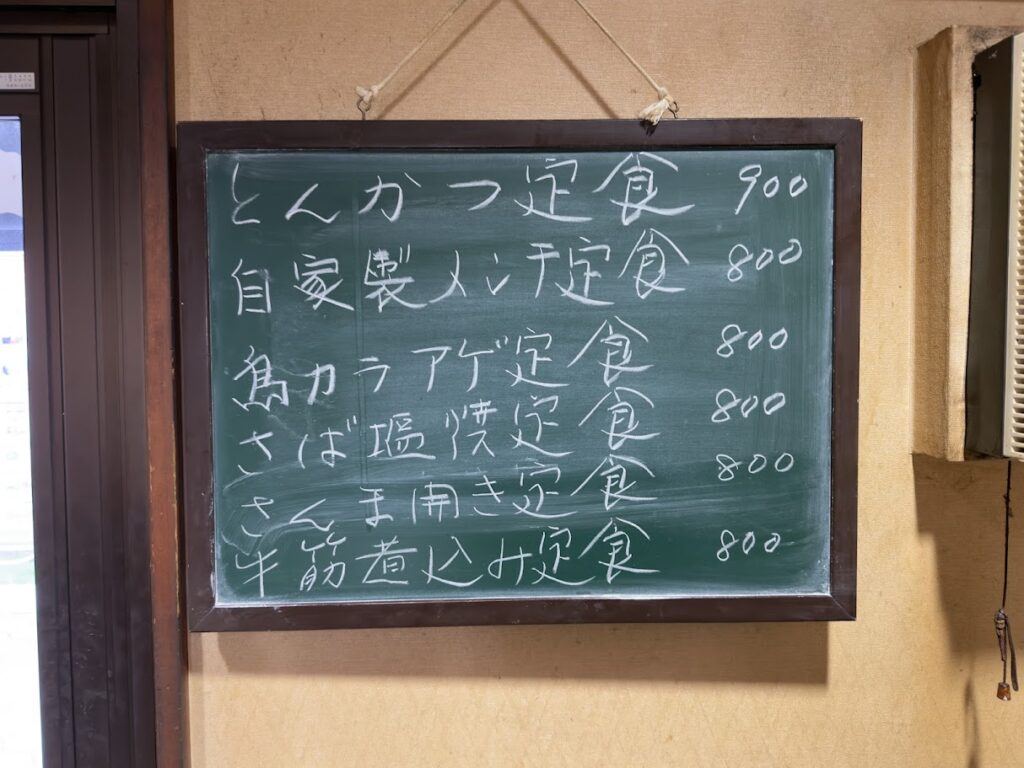 とんかつ定食 900
自家製メンチ定食 800
鳥カラアゲ定食 800
さば塩焼定食 800
さんま開き定食 800
牛筋煮込み定食 800